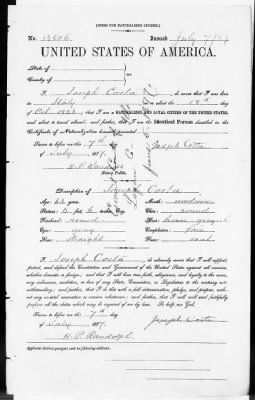 [FORM FOR NATURALIZED CITIZEN.]
No. Issued July 7/87
UNITED STATES OF AMERICA.
State of
County of
I, Joseph Costa, do swear that I was born
in Italy on or about the 18th day
of Oct 1823; that I am a NATURALIZED AND LOYAL CITIZEN OF THE UNITED STATES,
and about to travel abroad; and further, that I am the Identical Person described in the
Certificate of Naturalization herewith presented.
Sworn to before me this 7th day Joseph Costa
of July 1887
H. P. Randolph
Notary Public.
Description of Joseph Costa
Age: 63 years Mouth: medium
Stature: 5 feet 6 inches, Eng. Chin: round
Forehead: round Hair:
Eyes: gray Complexion: fair
Nose: straight Face: oval
I, Joseph Costa, do solemnly swear that I will support,
protect, and defend the Constitution and Government of the United States against all enemies,
whether domestic or foreign; and that I will bear true faith, allegiance, and loyalty to the same, any
ordinance, resolution, or law of any State, Convention, or Legislature to the contrary not-
withstanding; and further, that I do this with a full determination, pledge, and purpose, with-
out any mental reservation or evasion whatsoever; and further, that I will well and faithfully
perform all the duties which may be required of me by law. So help me God.
Sworn to before me this 7th
day Joseph Costa
of July 1887.
H. P. Randolph
Applicant desires passport sent to following address: